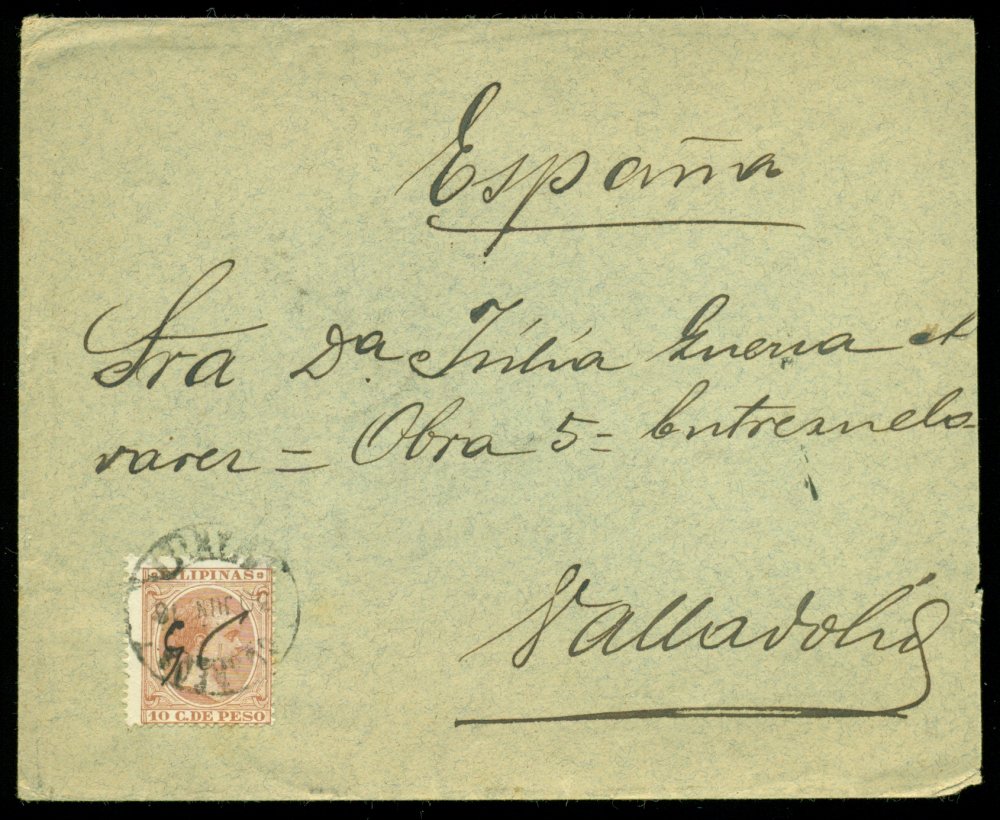 España
Sra Dª. Júlia Guerra Al
varez = Obra 5 = Entresuelo
Valladolid
FILIPINAS
JUN
10 C. DE PESO